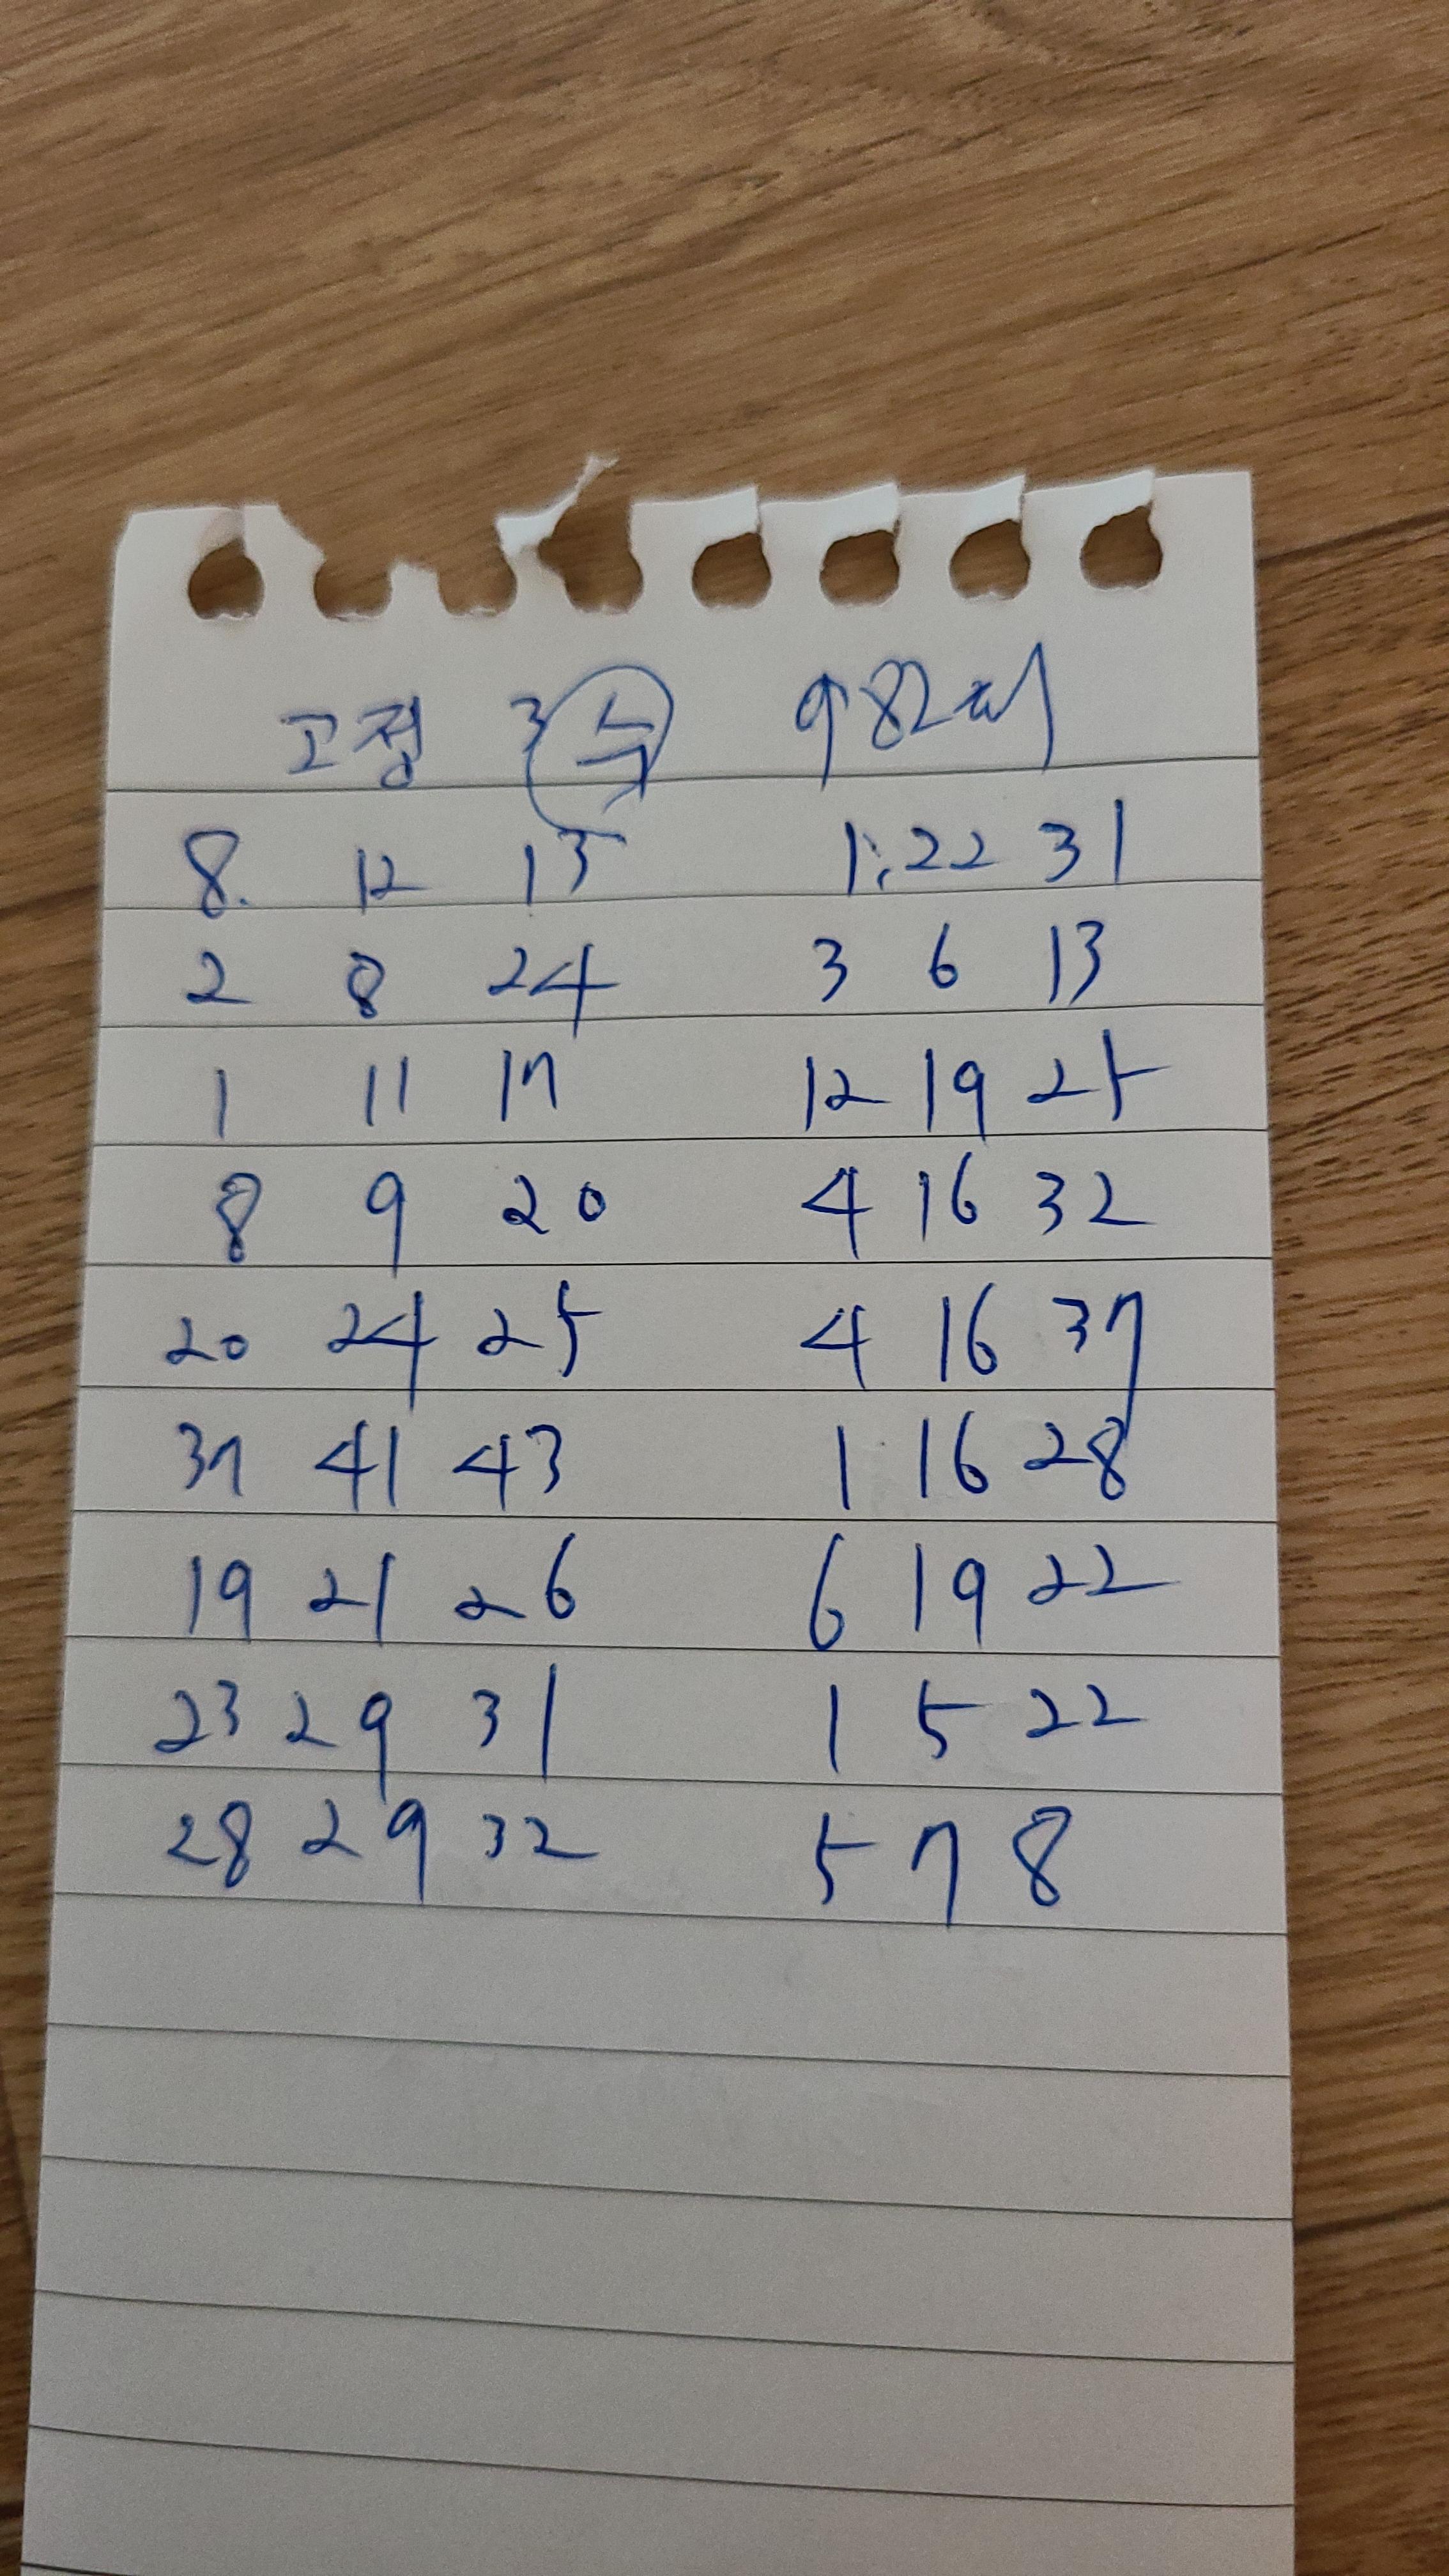 고정 3수 982회
8. 12 13 1, 22 31
2 8 24 3 6 13
1 11 17 12 19 25
8 9 20 4 16 32
20 24 25 4 16 37
37 41 43 1 16 28
19 21 26 6 19 22
23 29 31 1 5 22
28 29 32 5 7 8